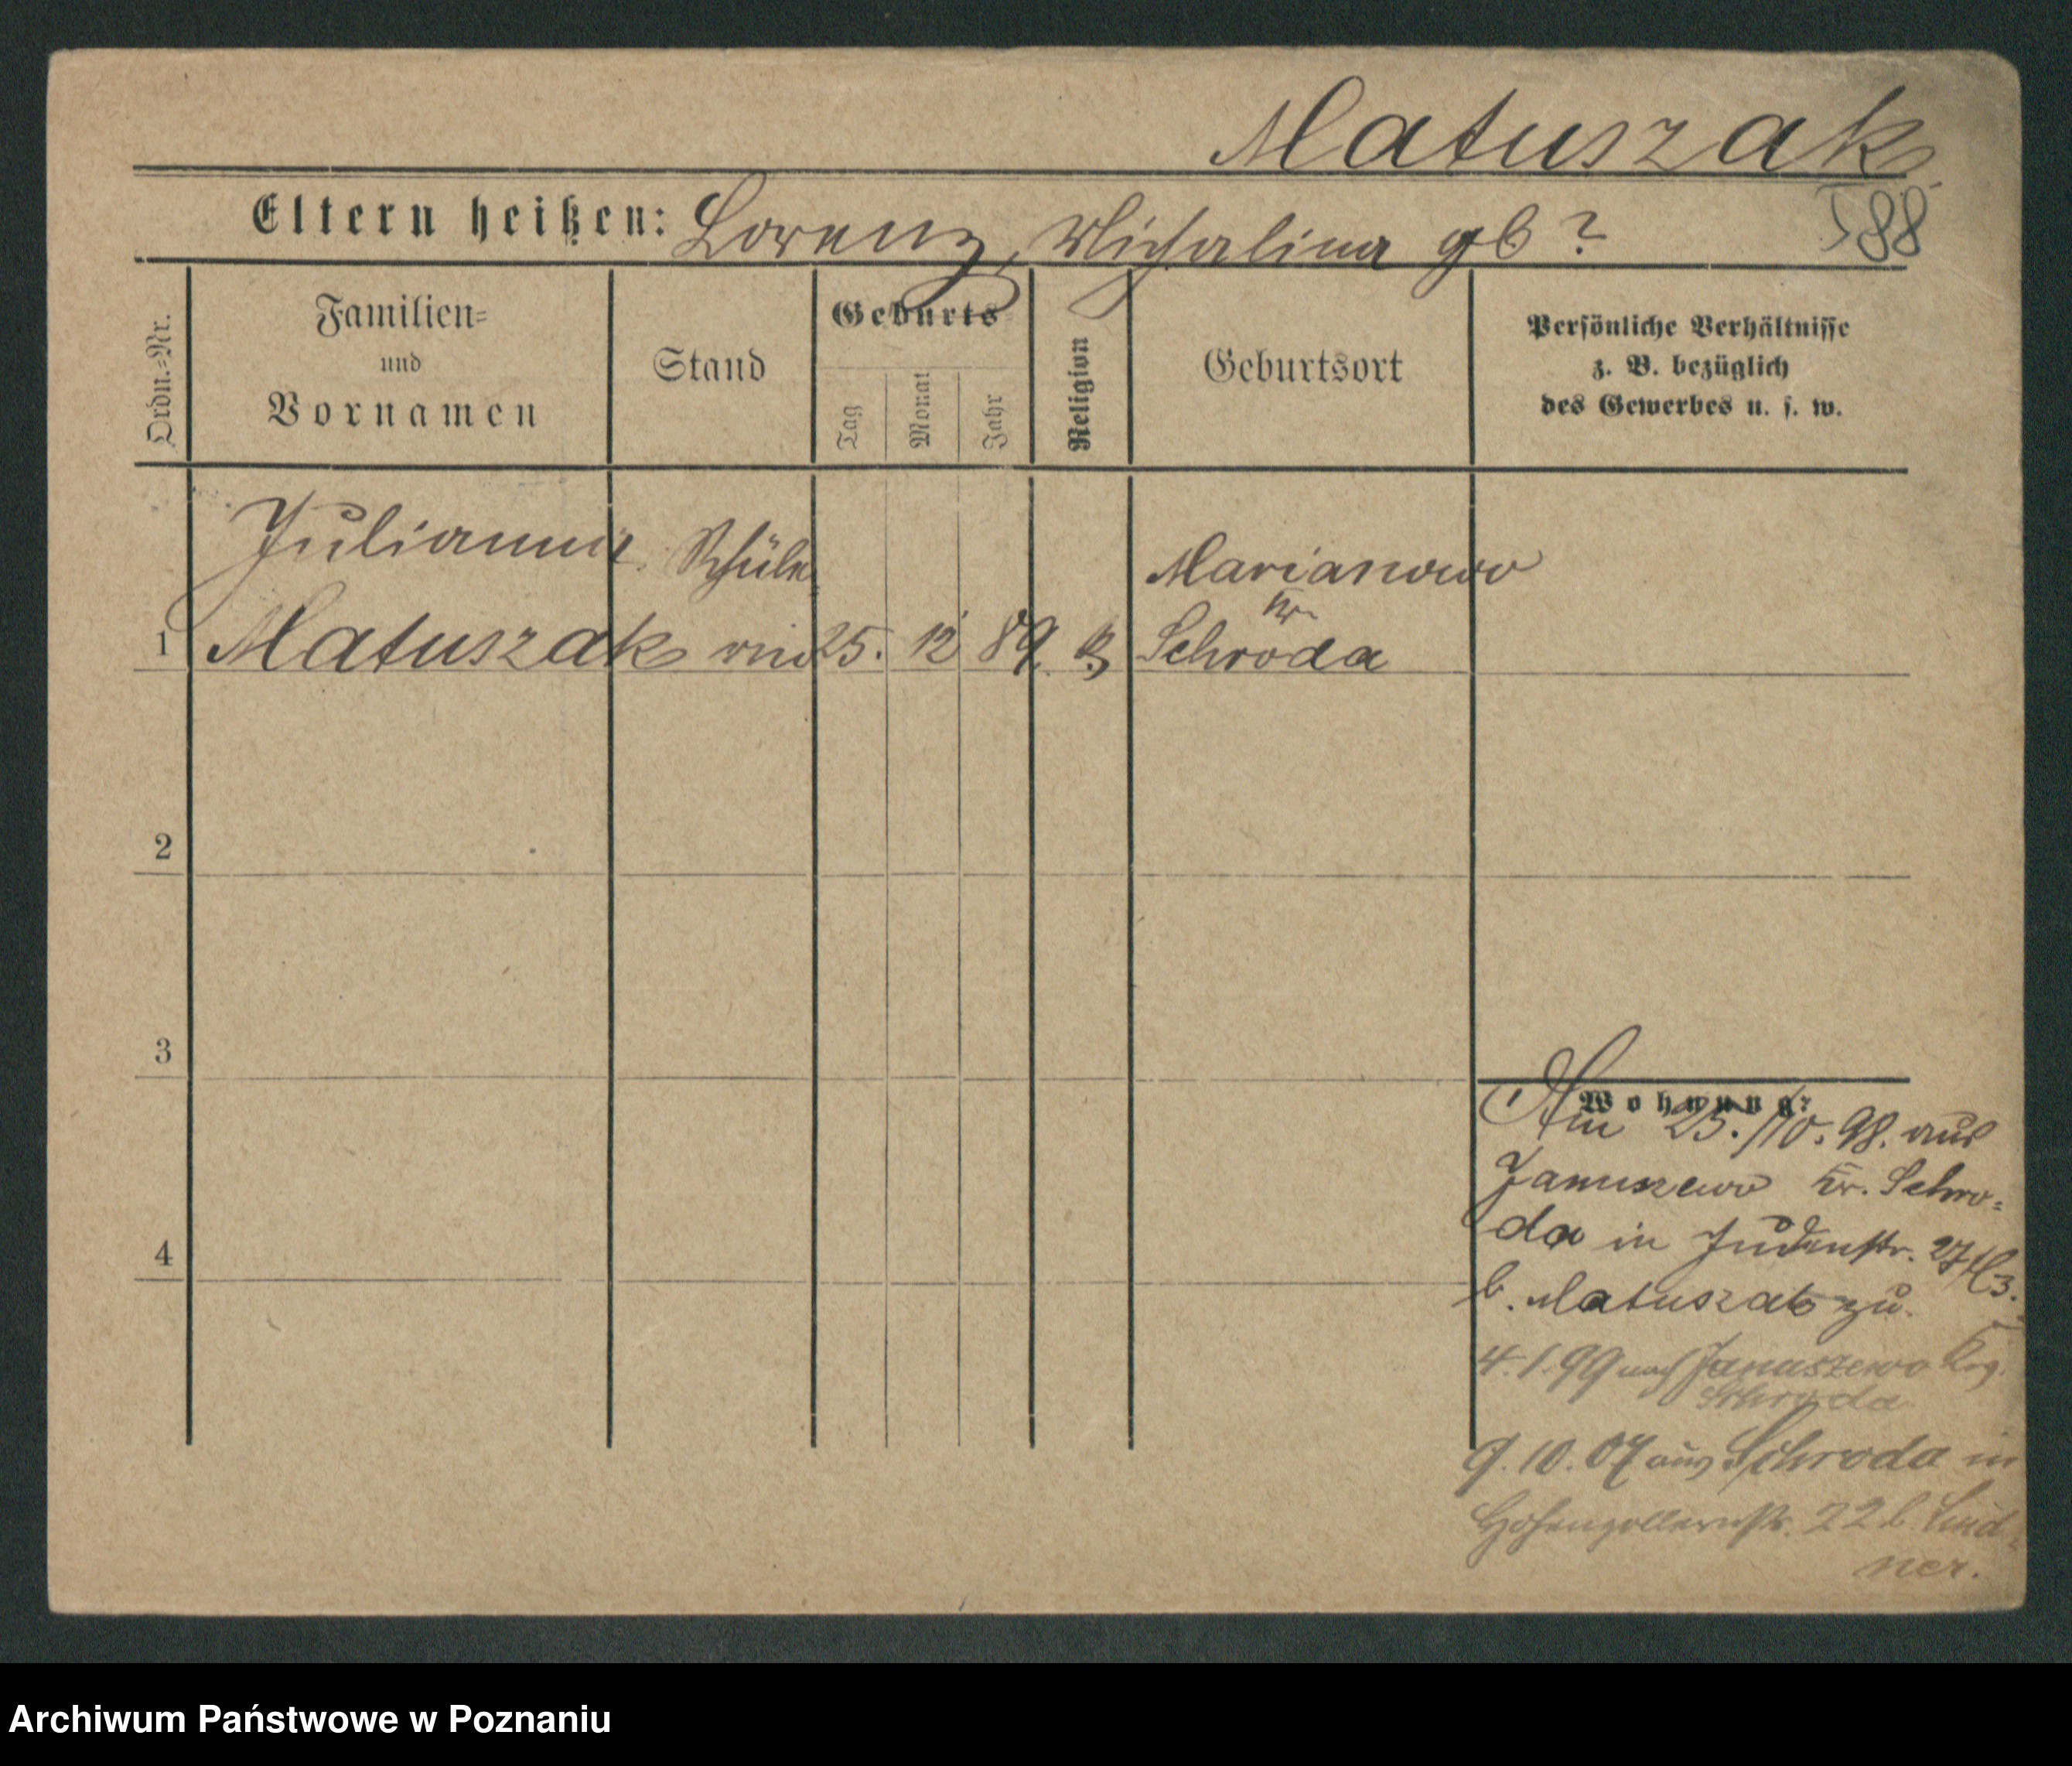 Matuszak
Eltern heißen: Lorenz, Michalina gb ?
588
Ordn.=Nr.
Familien=
und
Vornamen
Stand
Geburts
Tag
Monat
Jahr
Religion
Geburtsort
Persönliche Verhältnisse
z. B. bezüglich
des Gewerbes u. s. w.
Julianna Schüle
Marianowo
Kr
1 Matuszak rin 25. 12 89. Schroda
2
3
Wohnung:
Am 25./10. 98. aus
Januszewo Kr. Schro-
4
da in Judenstr. 27
b. Matuszak zu.
4.1.99 nach Januszewo
Schroda
9.10.07 aus Schroda in
Hohenzollernstr. 22 b. Lind-
ner.
Archiwum Państwowe w Poznaniu